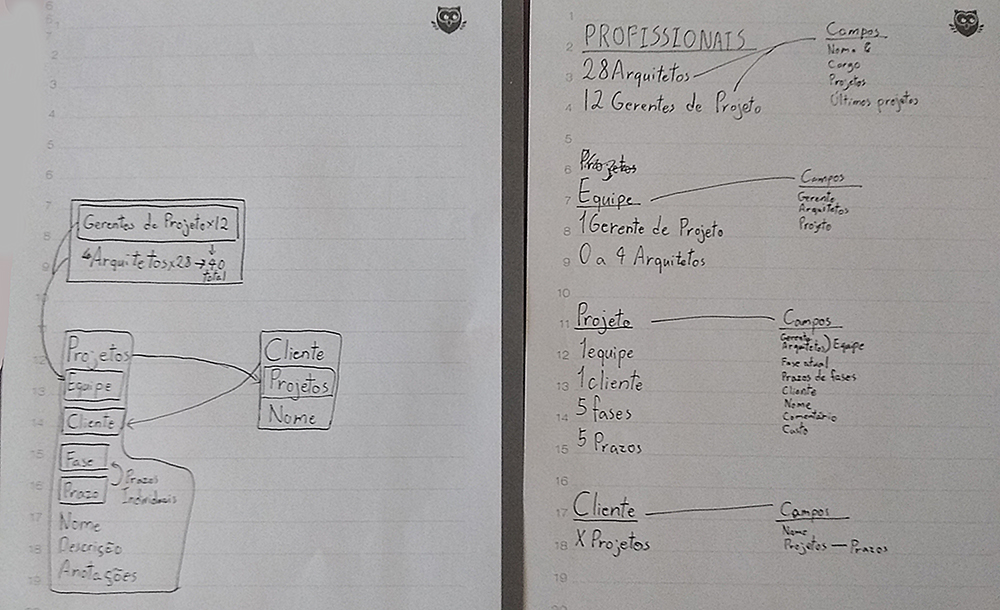 6
7
2
3
4
5
6
7
Gerentes de Projeto x12
8
4 Arquitetos x 28 → 40
total
9
10
11
12
Projetos
13
Equipe
14
Cliente
15
Fase
16
Prazo
Prazos
Individuais
17
Nome
18
Descrição
19
Anotações
Cliente
Projetos
Nome
1
2
PROFISSIONAIS
3
28 Arquitetos
4
12 Gerentes de Projeto
Campos
Nome
Cargo
Projetos
Últimos projetos
5
6
Projetos
7
Equipe
8
1 Gerente de Projeto
9
0 a 4 Arquitetos
Campos
Gerente
Arquitetos
Projeto
10
11
Projeto
12
1 equipe
13
1 cliente
14
5 fases
15
5 Prazos
Campos
Gerente
Arquitetos) Equipe
Fase atual
Prazos de fases
Cliente
Nome
Comentário
Custo
16
17
Cliente
18
X Projetos
Campos
Nome
Projetos — Prazos
19